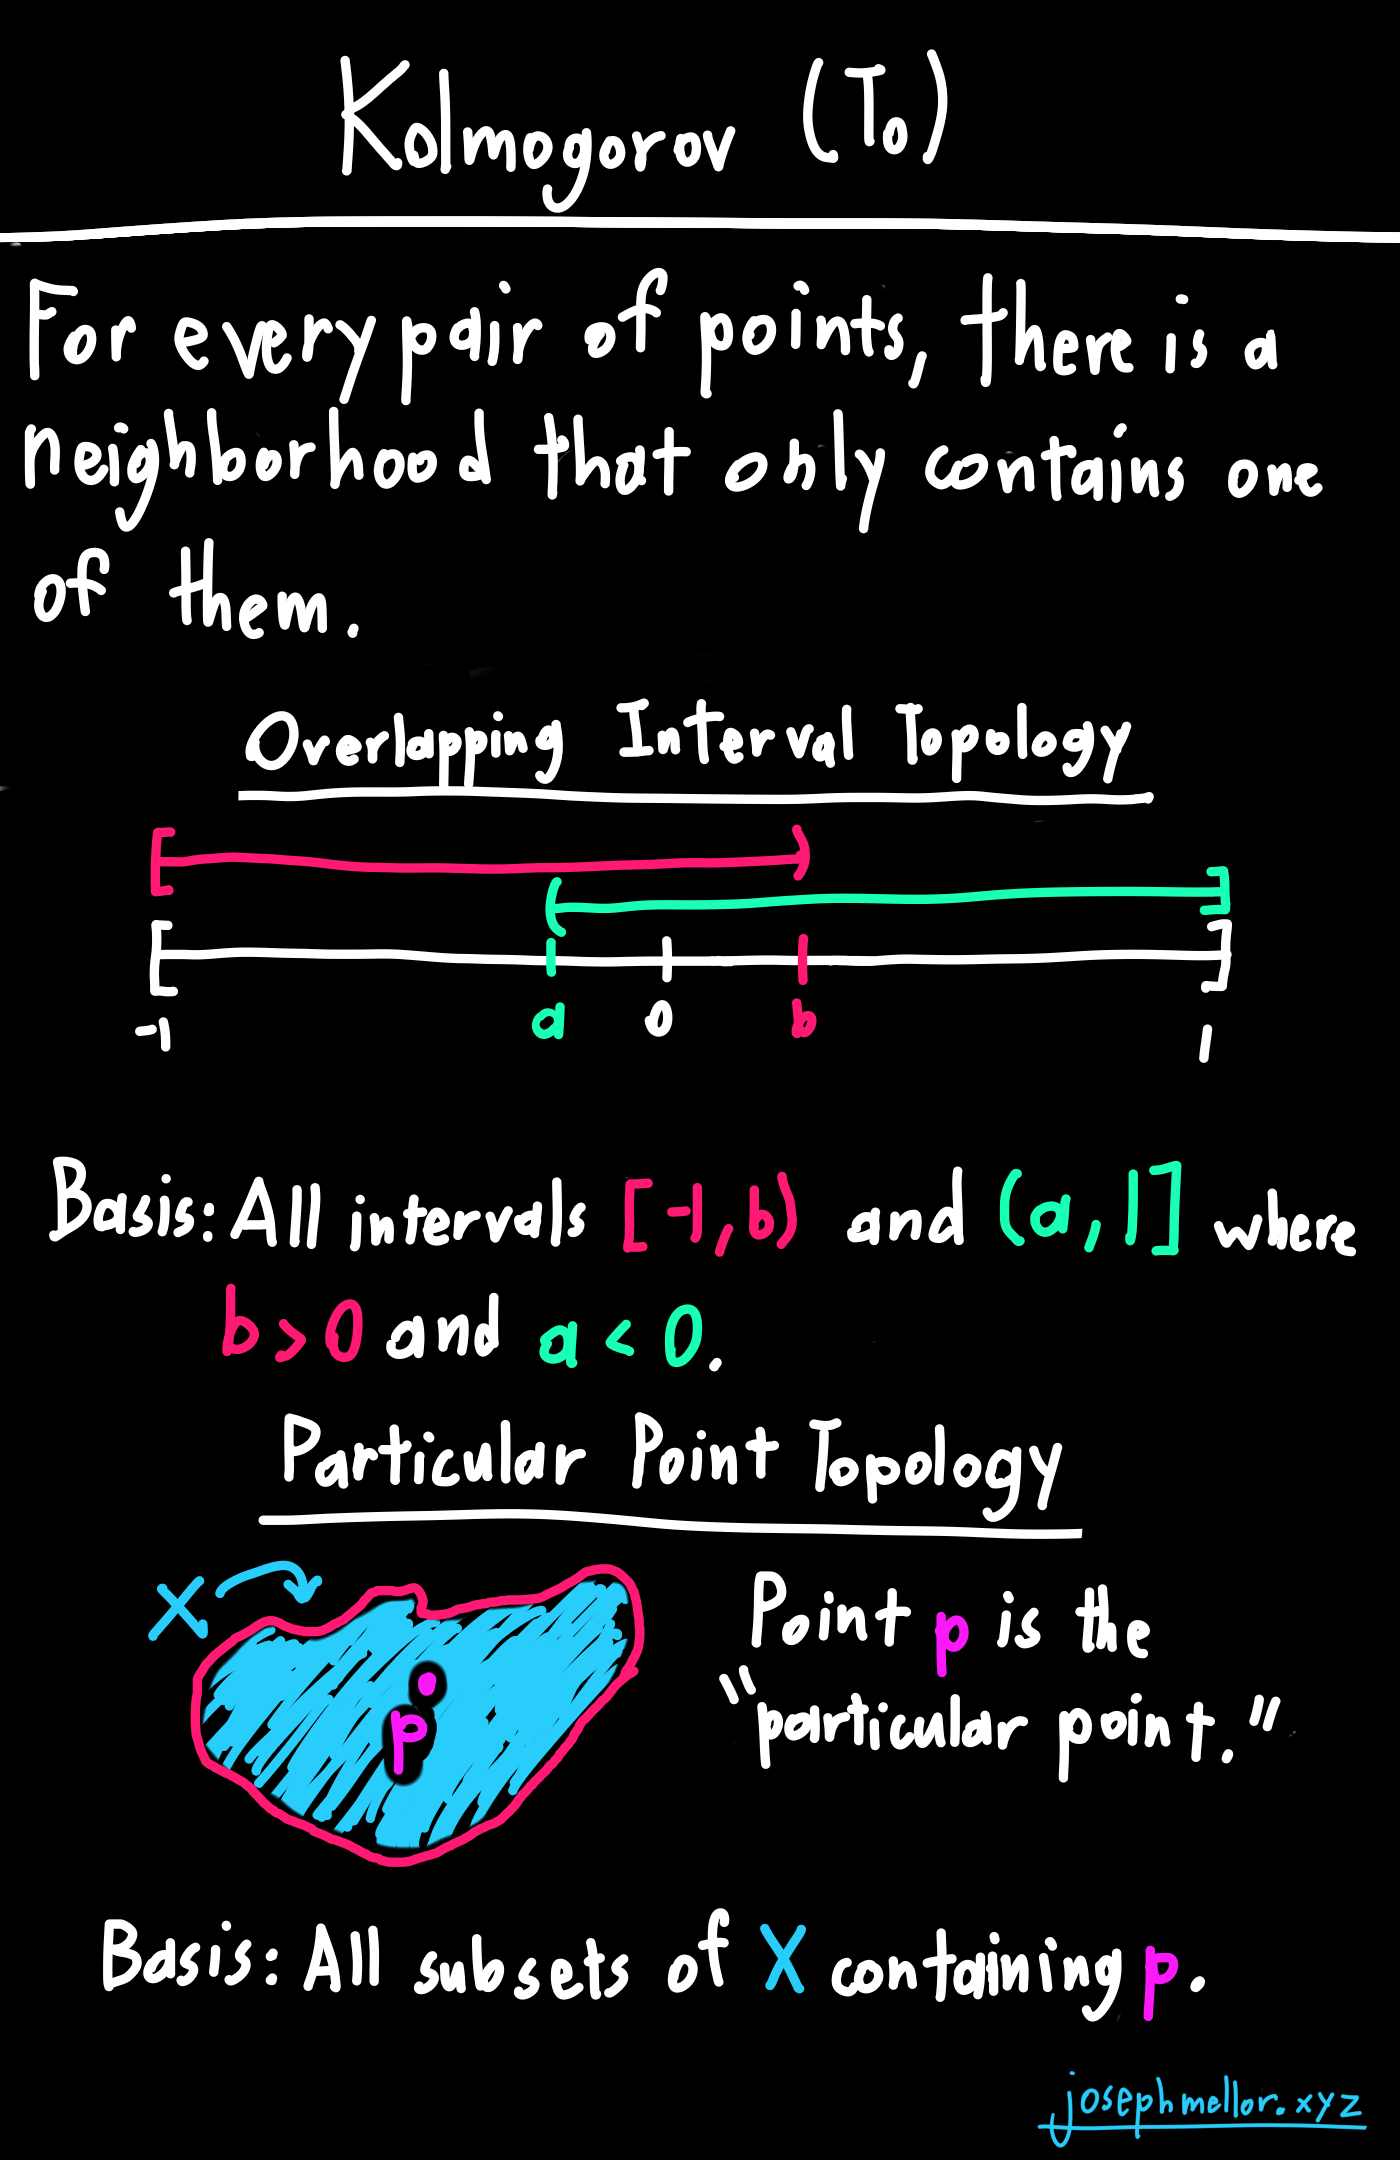 Kolmogorov (T₀)
For every pair of points, there is a
neighborhood that only contains one
of them.
Overlapping Interval Topology
-1 a 0 b 1
Basis: All intervals [-1, b) and (a, 1] where
b > 0 and a < 0.
Particular Point Topology
X
p
Point p is the
"particular point."
Basis: All subsets of X containing p.
josephmellor.xyz